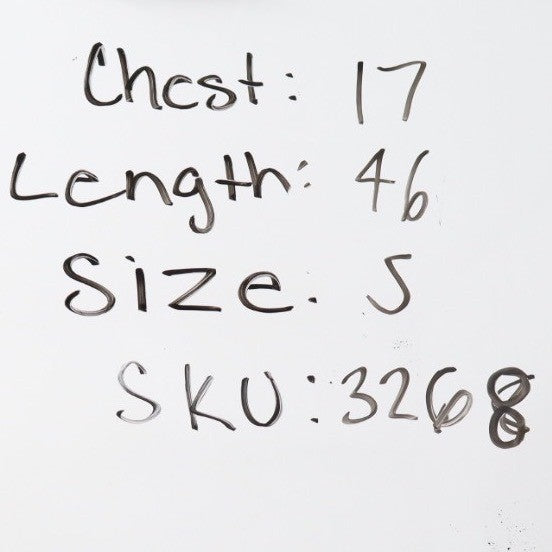 Chest: 17
Length: 46
Size: S
SKU: 3268